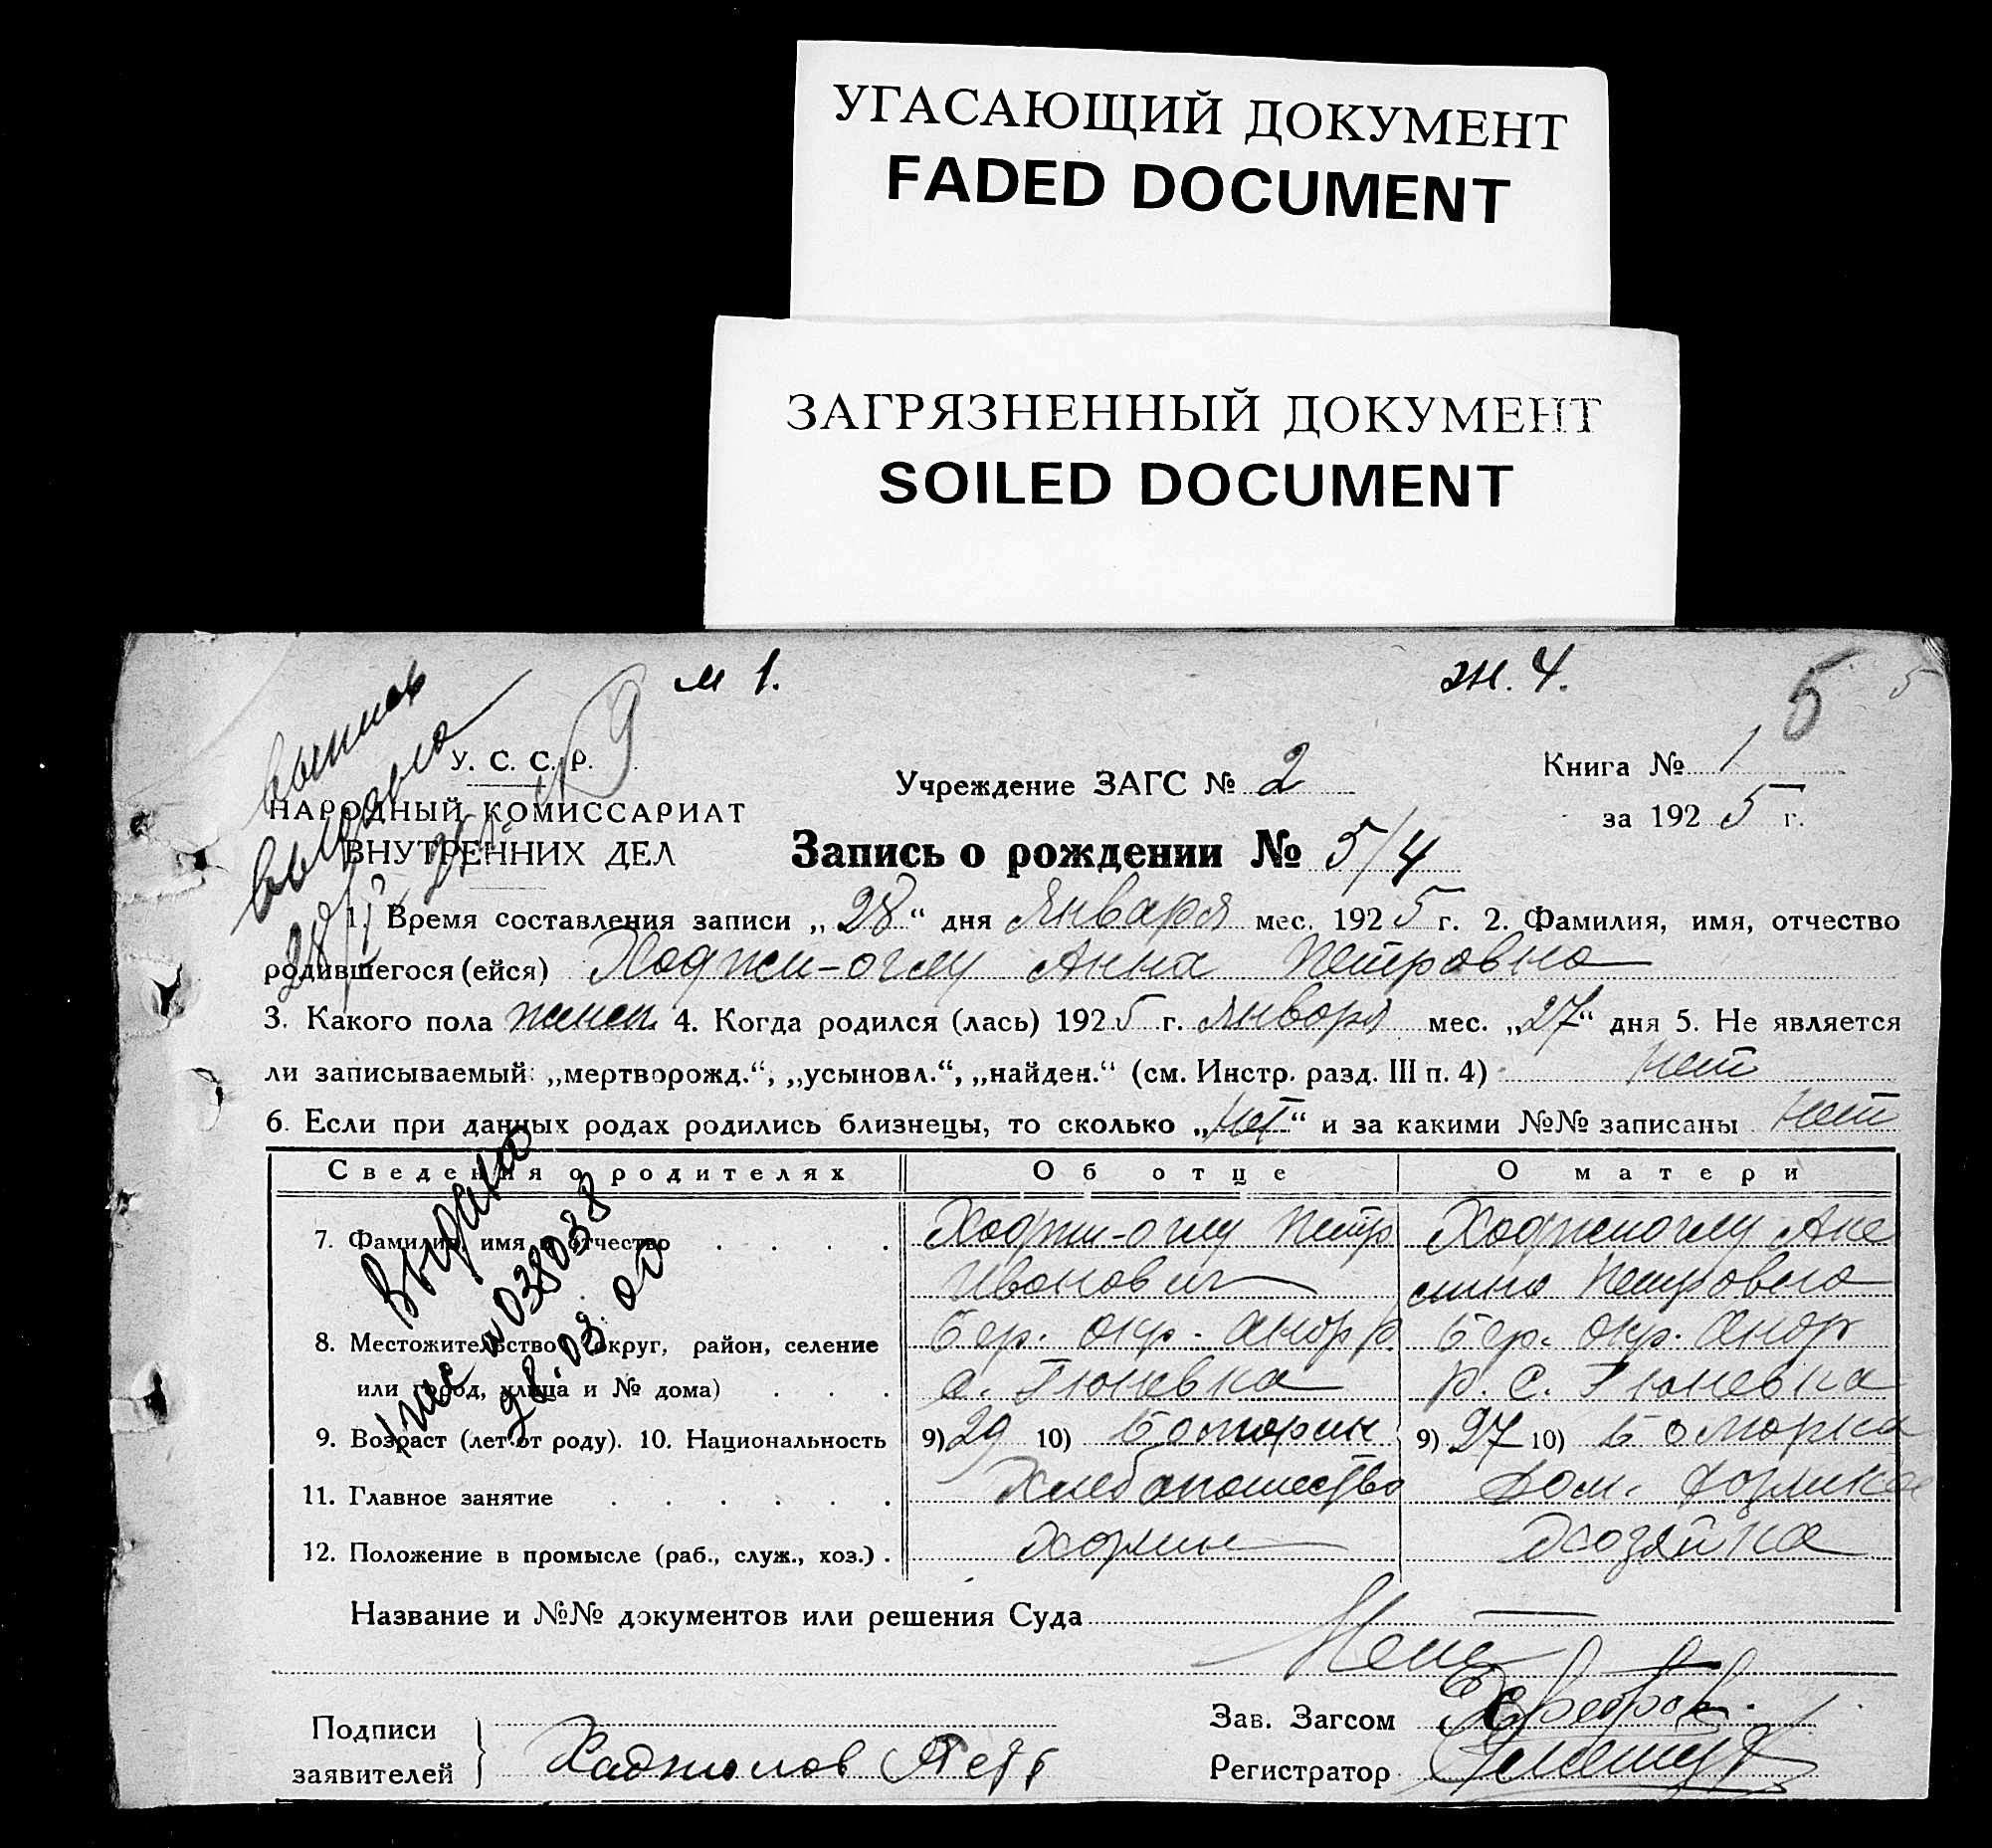 УГАСАЮЩИЙ ДОКУМЕНТ
FADED DOCUMENT
ЗАГРЯЗНЕННЫЙ ДОКУМЕНТ
SOILED DOCUMENT
м 1.
ж. 4.
5
5
У. С. С. Р.
НАРОДНЫЙ КОМИССАРИАТ
ВНУТРЕННИХ ДЕЛ
Учреждение ЗАГС № 2
Книга № 1
за 1925 г.
Запись о рождении № 5/4
1. Время составления записи „28“ дня Января мес. 1925 г. 2. Фамилия, имя, отчество
родившегося (ейся) Ходжи-оглу Анна Петровна
3. Какого пола женск. 4. Когда родился (лась) 1925 г. Января мес. „27“ дня 5. Не является
ли записываемый: „мертворожд.“, „усыновл.“, „найден.“ (см. Инстр. разд. III п. 4) нет
6. Если при данных родах родились близнецы, то сколько „нет“ и за какими №№ записаны нет
Сведения о родителях Об отце О матери
7. Фамилия, имя и отчество Ходжи-оглу Петр Ходжиоглу
Иванович Петровна
8. Местожительство (округ, район, селение Бер. окр. Бер. окр.
или город, улица и № дома) с. Гюневка р. с. Гюневка
9. Возраст (лет от роду). 10. Национальность 9) 29 10) 9) 27 10)
11. Главное занятие Хлебопашество Дом.
12. Положение в промысле (раб., служ., хоз.) Хозяйка
Выдано
038038
Название и №№ документов или решения Суда
Подписи
заявителей
Зав. Загсом
Регистратор